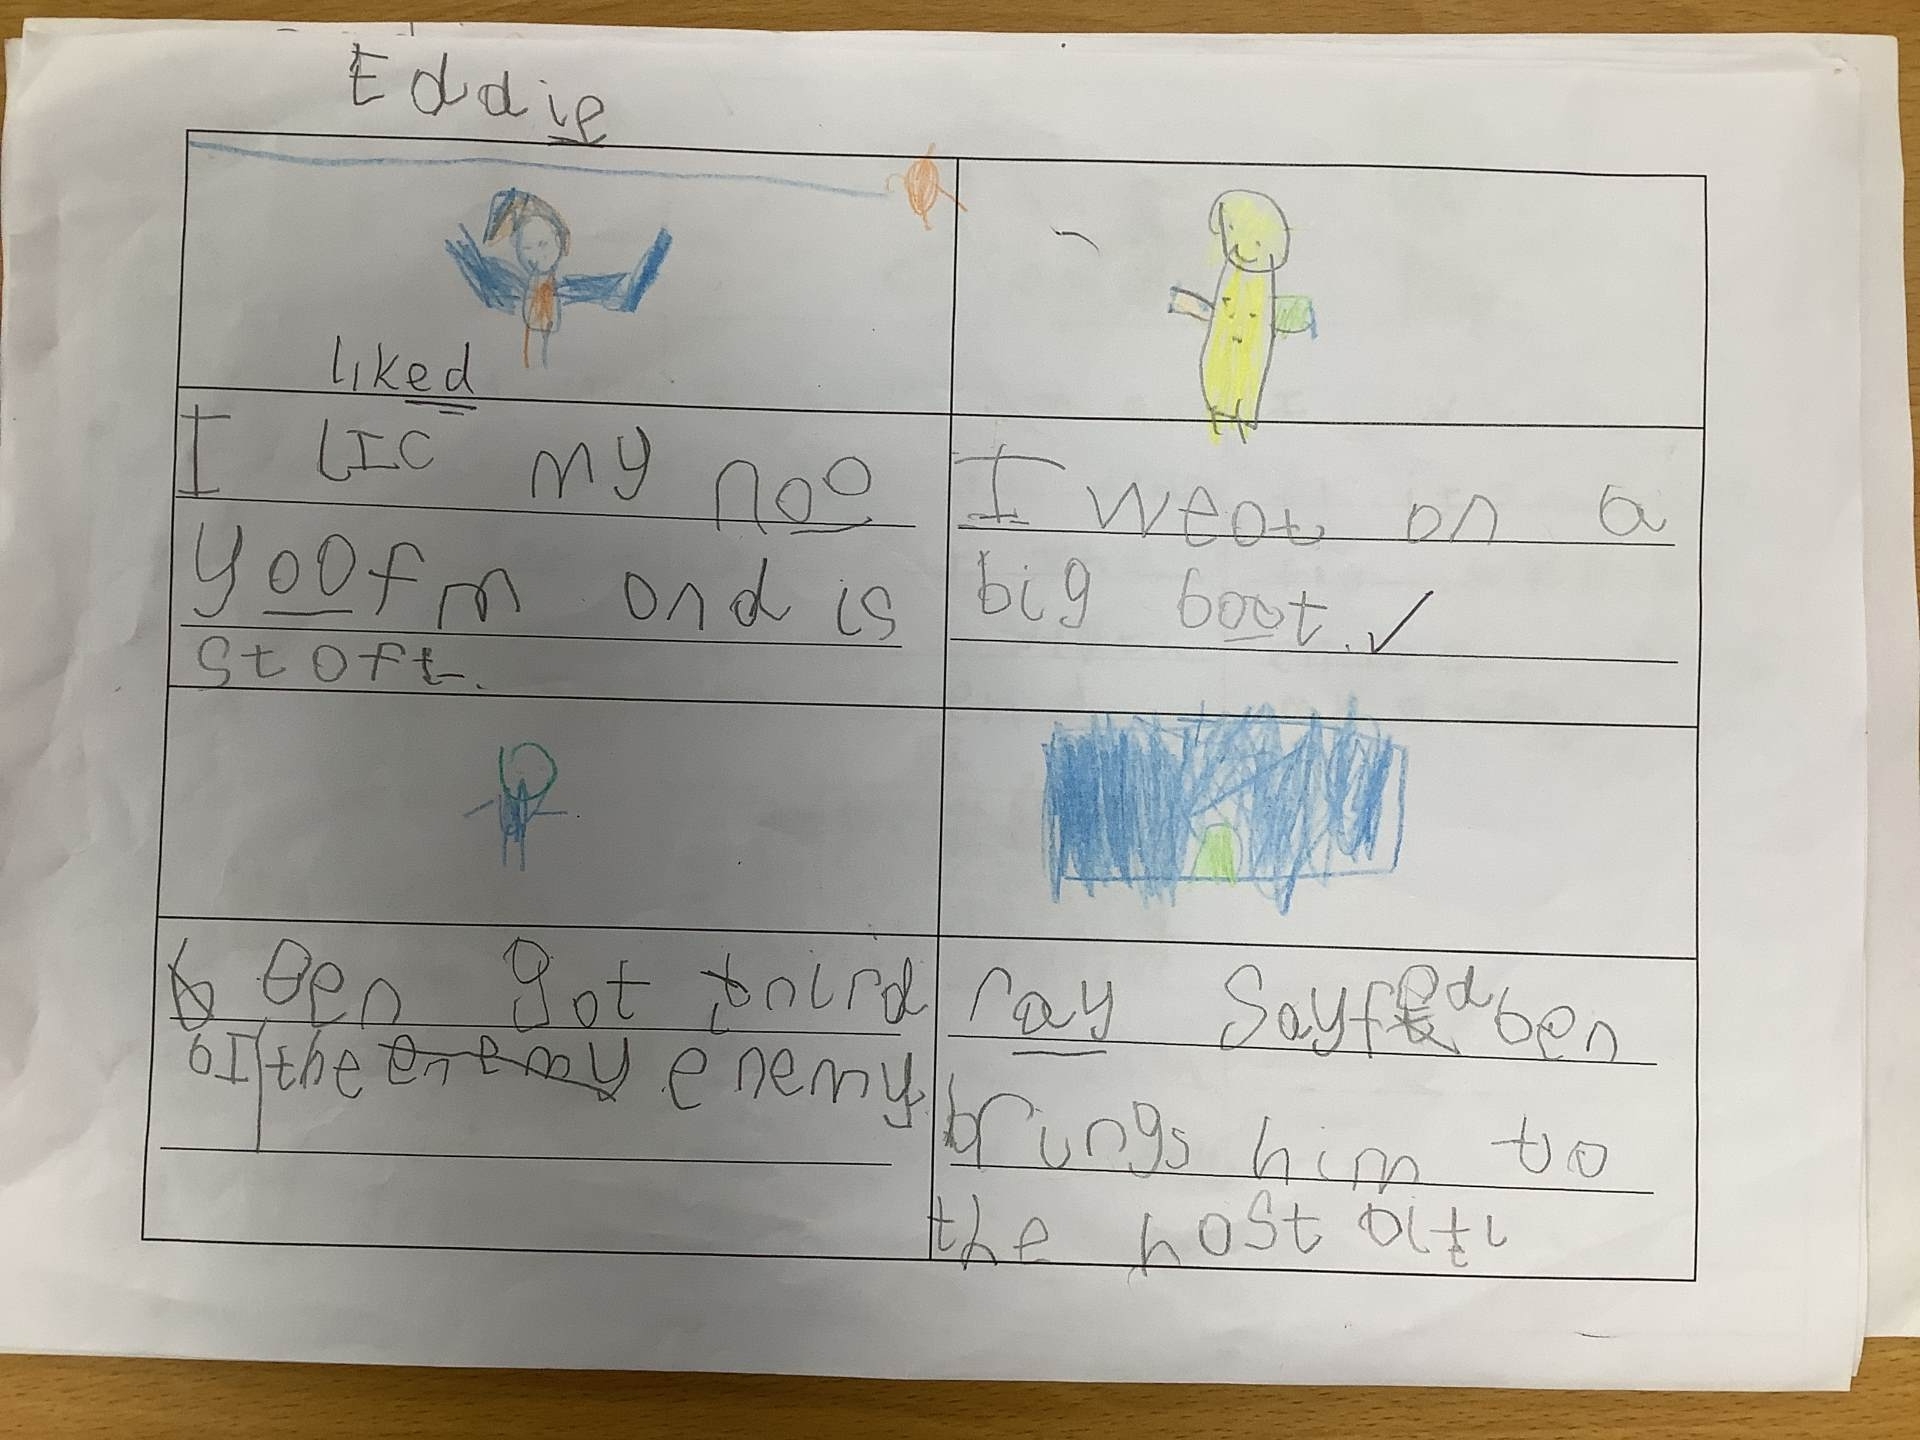 Eddie
liked
I LIC my noo
yoofm and is
stoft.
I weot on a
big boot.
Ben got tnird
bI the enemy enemy.
ray Sayfed ben
brungs him to
the host